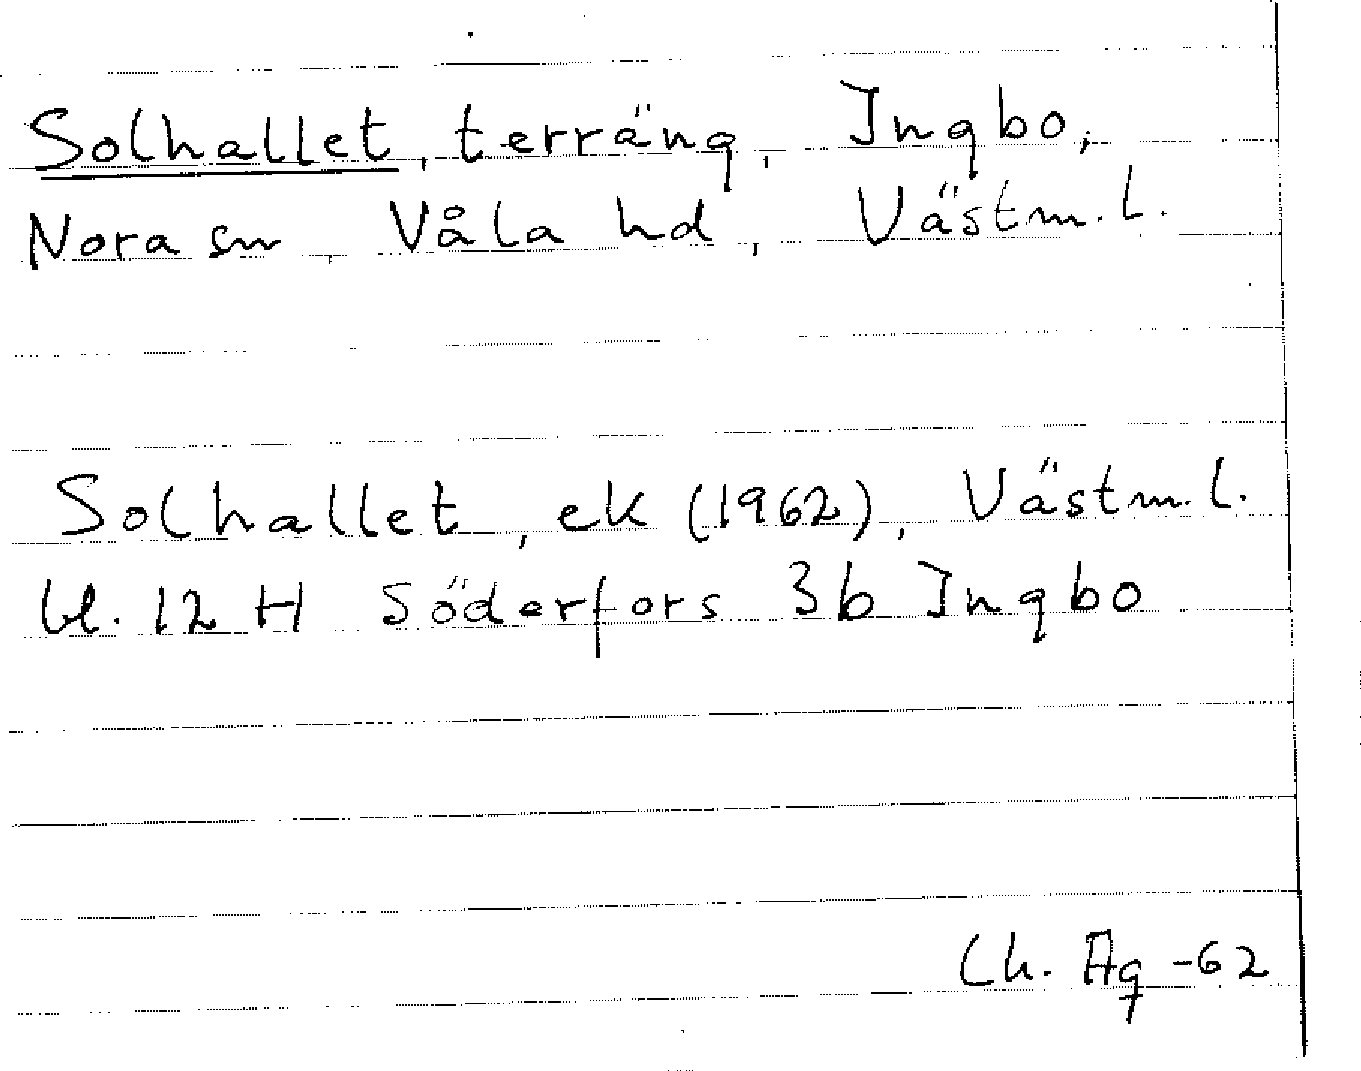 Solhallet, terräng, Ingbo,
Nora sn, Våla hd, Västm. l.
Solhallet, ek (1962), Västm. l.
bl. 12 H Söderfors 3b Ingbo
Ch. Ag -62